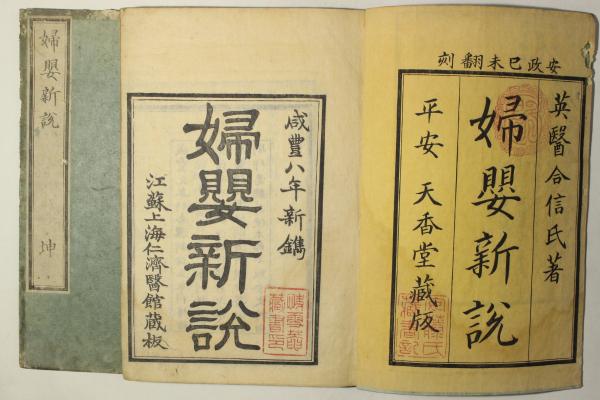 安政己未翻刻
英醫合信氏著
婦嬰新說
平安 天香堂藏版
咸豐八年新鐫
婦嬰新說
江蘇上海仁濟醫館蔵板
婦嬰新說
坤